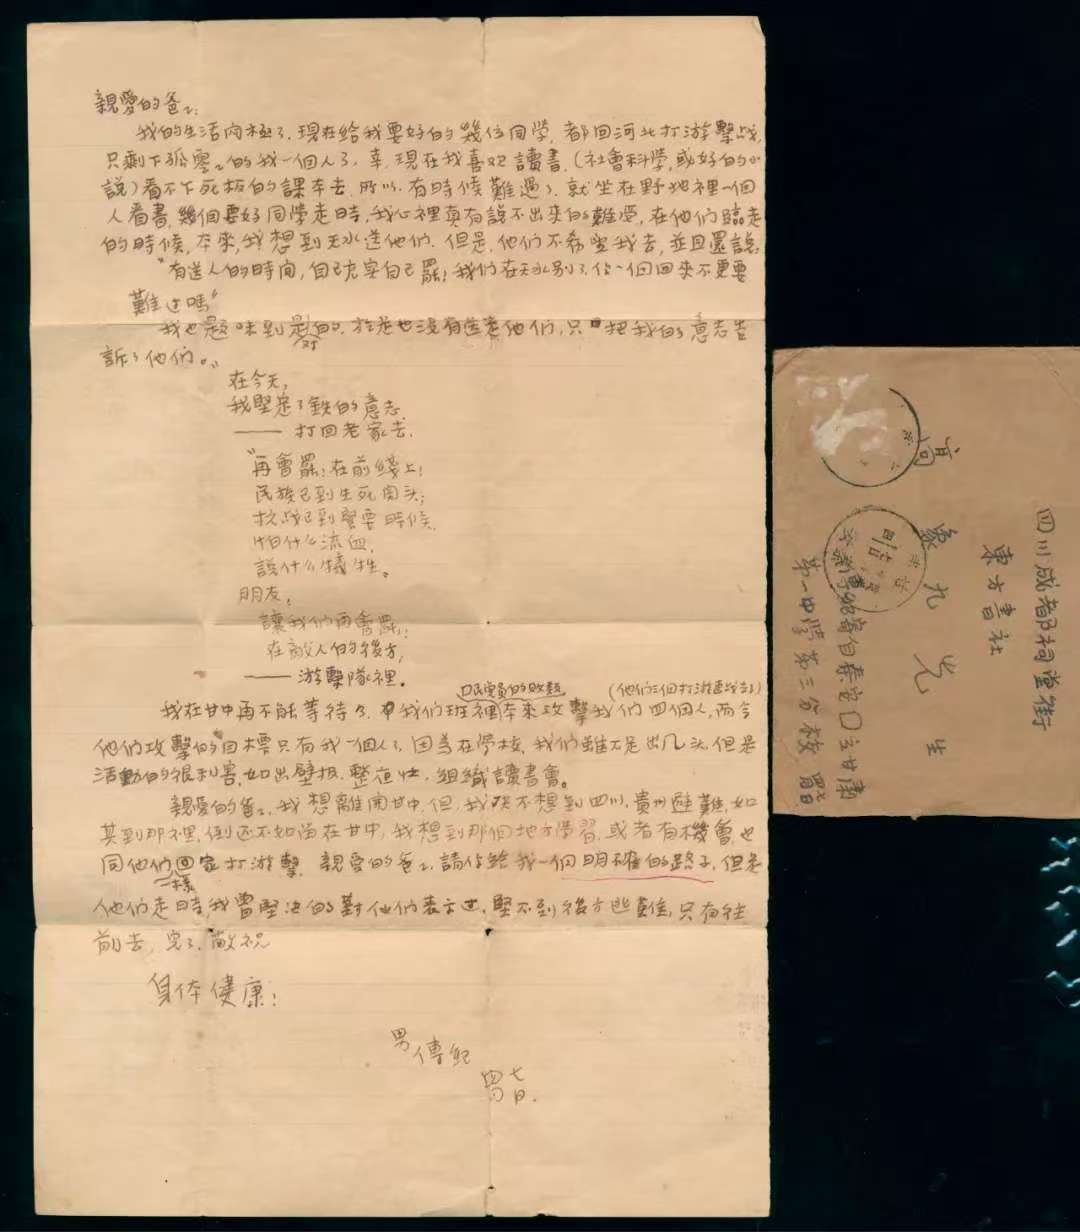 親愛的爸〻:
我的生活向極了.現在給我要好的幾位同学,都回河北打游擊战,
只剩下孤零〻的我一個人了,幸,現在我喜欢讀書,(社會科學,或好的小
說)看不下死板的課本去.所以,有時候難過了,就坐在野地裡一個
人看書,幾個要好同學走時,我心裡真有說不出來的難受,在他們臨走
的時候,本來,我想到天水送他們.但是,他們不希望我去,並且還說:
“有送人的時間,自己充实自己罷!我們在天水别了,你一個回來不更要
難过嗎”
我也是對的.於是也沒有送他們,只把我的意志告
訴了他們。”
在今天,
我堅定了鉄的意志.
——打回老家去.
“再會罷!在前綫上!
民族已到生死関头;
抗战已到緊要時候.
怕什么流血,
說什么犧牲。
朋友,
讓我們再會罷!
在敵人的後方,
——游擊隊裡。
(他們三個打游擊战去了)
我在甘中再不能等待了.我們班裡本來攻擊我們四個人,而今
他們攻擊的目標只有我一個人了,因為在學校,我們雖不是出几头,但是
活動的很利害,如出壁报,整夜忙,組織讀書會。
親愛的爸〻,我想離開甘中,但,我决不想到四川,貴州避難,如
其到那裡,倒还不如留在甘中,我想到那個地方學習,或者有機會,也
同他們一樣回家打游擊.親愛的爸〻,請你給我一個明確的路子,但是
他們走時,我曾堅决的對他們表示过,堅不到後方避難,只有往
前去,完了.敬祝
身体健康!
男傳紀
四月七日.
四川成都祠堂街
東方書社
象九先生
傳紀寄自秦安甘肅
第一中學第三分校